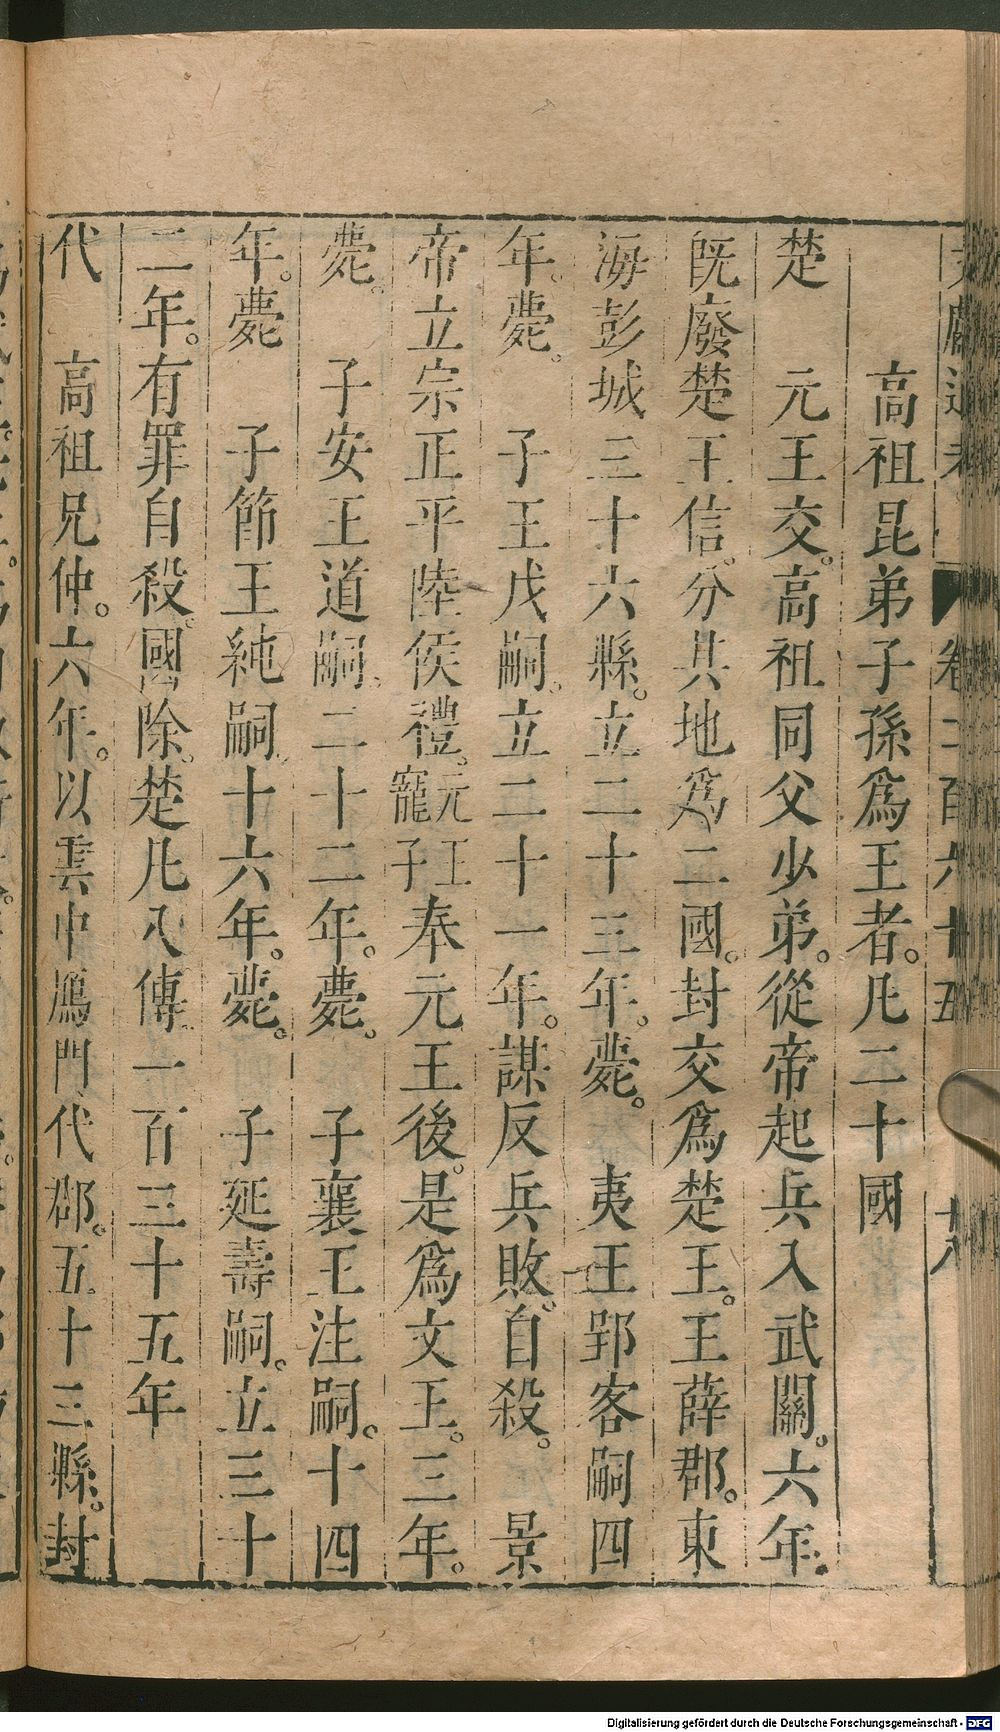 文獻通考 卷二百六十五 十八
高祖昆弟子孫爲王者。凡二十國
楚 元王交。高祖同父少弟。從帝起兵入武關。六年。
既廢楚王信。分其地爲二國。封交爲楚王。王薛郡。東
海彭城三十六縣。立二十三年。薨。 夷王郢客嗣四
年。薨。 子王戊嗣。立二十一年。謀反兵敗。自殺。 景
帝立宗正平陸侯禮。元王寵子奉元王後。是爲文王。三年。
薨。 子安王道嗣。二十二年。薨。 子襄王注嗣。十四
年。薨 子節王純嗣。十六年。薨。 子延壽嗣。立三十
二年。有罪自殺。國除。楚凡八傳。一百三十五年
代 高祖兄仲。六年。以雲中鴈門、代郡。五十三縣。封
Digitalisierung gefördert durch die Deutsche Forschungsgemeinschaft - DFG